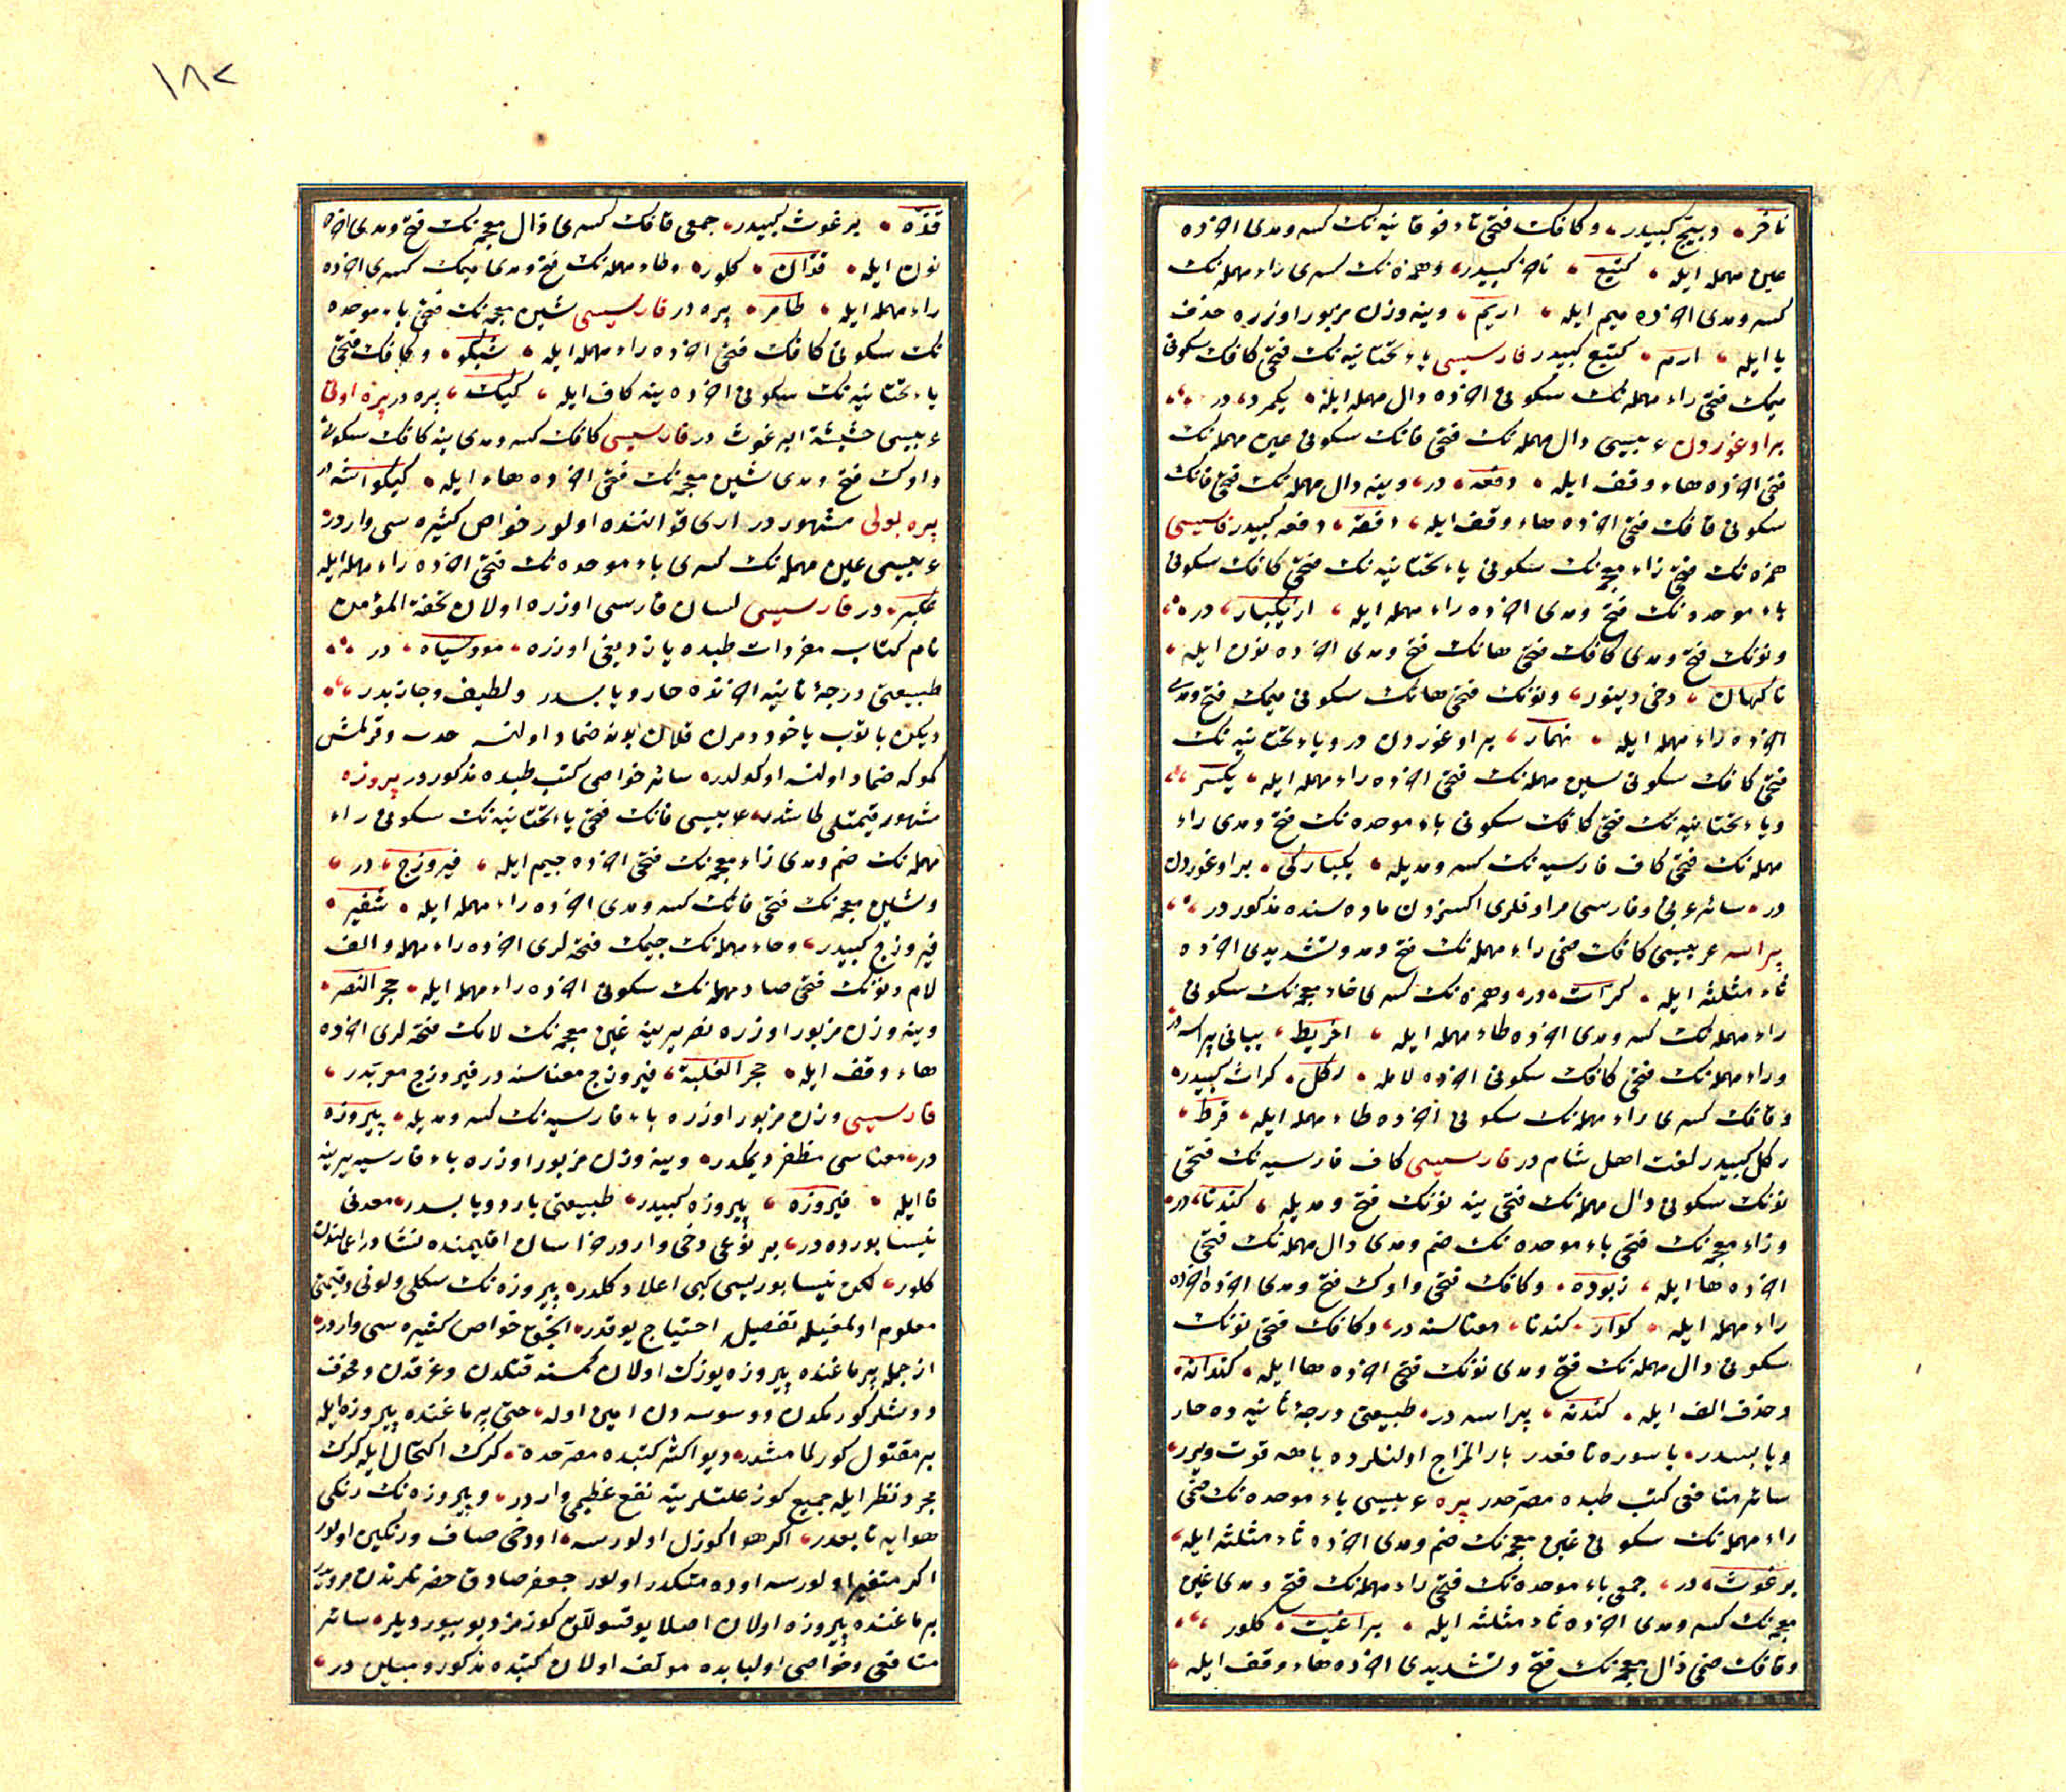 ناخر دبیج کبیدر وكافك فتحی تاء فوقانیه‌نك كسر و مدی آخرده
عین مهمله ایله كتیع ناخر کبیدر وهمزه‌نك كسری راء مهمله‌نك
كسر و مدی آخرده میم ایله اریم وینه وزن مزبور اوزره حذف
یا ایله ارم كتیع کبیدر فارسیسی یاء تحتانیه‌نك فتحی كافك سكونی
میمك فتحی راء مهمله‌نك سكونی آخرده دال مهمله ایله یكمرد در
بر اوغوردن عربیسی دال مهمله‌نك فتحی فانك سكونی عین مهمله‌نك
فتحی آخرده هاء وقف ایله دفعه در وینه دال مهمله‌نك فتحی فانك
سكونی قافك فتحی آخرده هاء وقف ایله دفقه دفعه کبیدر فارسیسی
همزه‌نك فتحی زاء معجمه‌نك سكونی یاء تحتانیه‌نك فتحی كافك سكونی
باء موحده‌نك فتح ومدی آخرده راء مهمله ایله ازیكبار در
ونونك فتح ومدی كافك فتحی هانك فتح ومدی آخرده نون ایله
ناكهان دخی دینور ونونك فتحی هانك سكونی میمك فتح ومدی
آخرده راء مهمله ایله نهمار بر اوغوردن در ویاء تحتانیه‌نك
فتحی كافك سكونی سین مهمله‌نك فتحی آخرده راء مهمله ایله یكسر
ویاء تحتانیه‌نك فتحی كافك سكونی باء موحده‌نك فتح ومدی راء
مهمله‌نك فتحی كاف فارسیه‌نك كسر ومدیله یكبارکی بر اوغوردن
در سائر عربی وفارسی مرادفلری اكسزدن ماده‌سنده مذكوردر
پراسه عربیسی كافك ضمی راء مهمله‌نك فتح ومد وتشدیدی آخرده
ثاء مثلثه ایله كراث در وهمزه‌نك كسری خاء معجمه‌نك سكونی
راء مهمله‌نك كسر ومدی آخرده طاء مهمله ایله اخریط یبانی پراسه در
وراء مهمله‌نك فتحی كافك سكونی آخرده لامله ركل كراث کبیدر
وقافك كسری راء مهمله‌نك سكونی آخرده طاء مهمله ایله قرط
ركل کبیدر لغت اهل شام در فارسیسی كاف فارسیه‌نك فتحی
نونك سكونی دال مهمله‌نك فتحی ینه نونك فتح ومدیله كندنا در
وزاء معجمه‌نك فتحی باء موحده‌نك ضم ومدی دال مهمله‌نك فتحی
آخرده ها ایله زبوده وكافك فتحی واوك فتح ومدی آخرده
راء مهمله ایله كوار كندنا معناسنه در وكافك فتحی نونك
سكونی دال مهمله‌نك فتح ومدی نونك فتحی آخرده ها ایله كندانه
وحذف الف ایله كندنه پراسه در طبیعتی درجۀ ثانیه‌ده حار
ویابسدر باسوره نافعدر بارد المزاج اولنلرده باهه قوت ویرر
سائر منافعی كتب طبده مصرحدر پره عربیسی باء موحده‌نك ضمی
راء مهمله‌نك سكونی غین معجمه‌نك ضم ومدی آخرده ثاء مثلثه ایله
برغوث در جمعی باء موحده‌نك فتحی راء مهمله‌نك فتح ومدی غین
معجمه‌نك كسر ومدی آخرده ثاء مثلثه ایله براغیث كلور
وقافك ضمی ذال معجمه‌نك فتح وتشدیدی آخرده هاء وقف ایله
١٨٢
قذه برغوث کبیدر جمعی قافك كسری ذال معجمه‌نك فتح ومدی آخرده
نون ایله قذان كلور وطاء مهمله‌نك فتح ومدی میمك كسری آخرده
راء مهمله ایله طامر پره در فارسیسی شین معجمه‌نك فتحی باء موحده
نك سكونی كافك فتحی آخرده راء مهمله ایله وكافك فتحی
یاء تحتانیه‌نك سكونی آخرده ینه كاف ایله كیك پره در پره اوتی
عربیسی حشیشة البرغوث در فارسیسی كافك كسر ومدی ینه كافك سكونی
واوك فتح ومدی شین معجمه‌نك فتحی آخرده هاء ایله كیكواشه در
پره بولی مشهوردر اری قواننده اولور خواص كثیره‌سی واردر
عربیسی عین مهمله‌نك كسری باء موحده‌نك فتحی آخرده راء مهمله ایله
عكبر در فارسیسی لسان فارسی اوزره اولان تحفة المؤمن
نام كتاب مفردات طبده یازدیغی اوزره مومسیاه در
طبیعتی درجۀ ثانیه آخرنده حار ویابسدر ولطیف وجاذبدر
دیكن باتوب یاخود دمرن قلان یره ضماد اولنسه
كوكه ضماد اولنسه اوكولدر سائر خواصی كتب طبده مذكوردر پیروزه
مشهور قیمتلی طاشدر عربیسی فانك فتحی یاء تحتانیه‌نك سكونی راء
مهمله‌نك ضم ومدی زاء معجمه‌نك فتحی آخرده جیم ایله فیروزج در
وشین معجمه‌نك فتحی فانك كسر ومدی آخرده راء مهمله ایله شفیر
فیروزج کبیدر وحاء مهمله‌نك جیمك فتحه‌لری آخرده راء مهمله والف
لام ونونك فتحی صاد مهمله‌نك سكونی آخرده راء مهمله ایله حجر النصر
وینه وزن مزبور اوزره نصر یرینه غین معجمه‌نك لامك فتحه‌لری آخرده
هاء وقف ایله حجر الغلبة فیروزج معناسنه در فیروزج معربدر
فارسیسی وزن مزبور اوزره باء فارسیه‌نك كسر ومدیله پیروزه
در معناسی مظفر دیمكدر وینه وزن مزبور اوزره باء فارسیه یرینه
فا ایله فیروزه پیروزه کبیدر طبیعتی بارد ویابسدر معدنی
نیسابورده در بر نوعی دخی واردر خراسان اقلیمنده
كلور لكن نیسابوریسی كبی اعلا دكلدر پیروزه‌نك شكلی ولونی وقیمتی
معلوم اولمغیله تفصیل احتیاج یوقدر انجق خواص كثیره‌سی واردر
از جمله پرماغنده پیروزه یوزك اولان كمسنه قتلدن وغرقدن ومخوف
دوشلر كورمكدن ووسوسه‌دن امین اوله حتی پرماغنده پیروزه ایله
بر مقتول كورلمامشدر دیو اكثر كتبده مصرحدر كرك اكتحال ایله كرك
مجرد نظر ایله جمیع كوز علتلرینه نفع عظیمی واردر وپیروزه‌نك رنكی
هوایه تابعدر اكر هوا كوزل اولورسه اودخی صاف ورنكین اولور
اكر متغیر اولورسه اوده متكدر اولور جعفر صادق حضرتلرندن مرویدر
پرماغنده پیروزه اولان اصلا یوقسوللق كورمز دیو بیوردیلر سائر
منافعی وخواصی اولبابده مؤلف اولان كتبده مذكور ومبین در